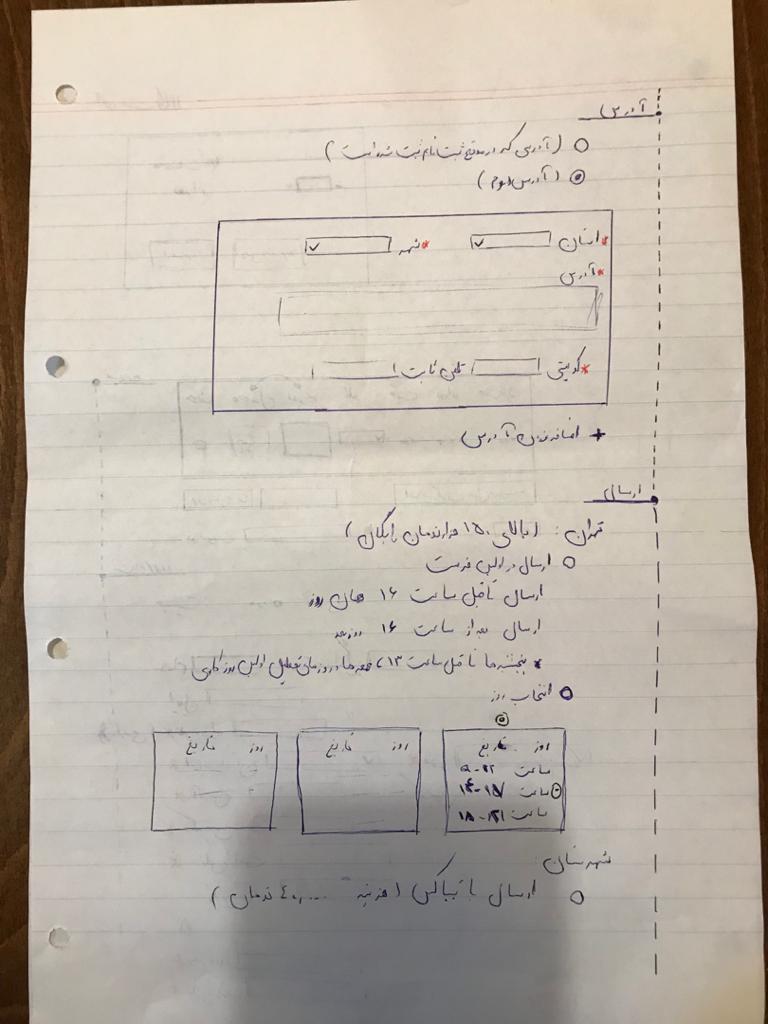 آدرس
(آدرسی که در موقع ثبت نام ثبت شده است)
(آدرس دوم)
*استان *شهر
*آدرس
*کد پستی تلفن ثابت
+ اضافه کردن آدرس
ارسال
تهران: (بالای ۱۵۰ هزار تومان رایگان)
ارسال در اولین فرصت
ارسال تا قبل ساعت ۱۶ همان روز
ارسال بعد از ساعت ۱۶ روز بعد
* پنجشنبه ها تا قبل ساعت ۱۳، جمعه ها و روزهای تعطیل اولین روز کاری
انتخاب روز
روز تاریخ روز تاریخ روز تاریخ
ساعت ۹-۱۲
ساعت ۱۴-۱۷
ساعت ۱۸-۲۱
شهرستان:
ارسال با تیپاکس (هزینه تومان)